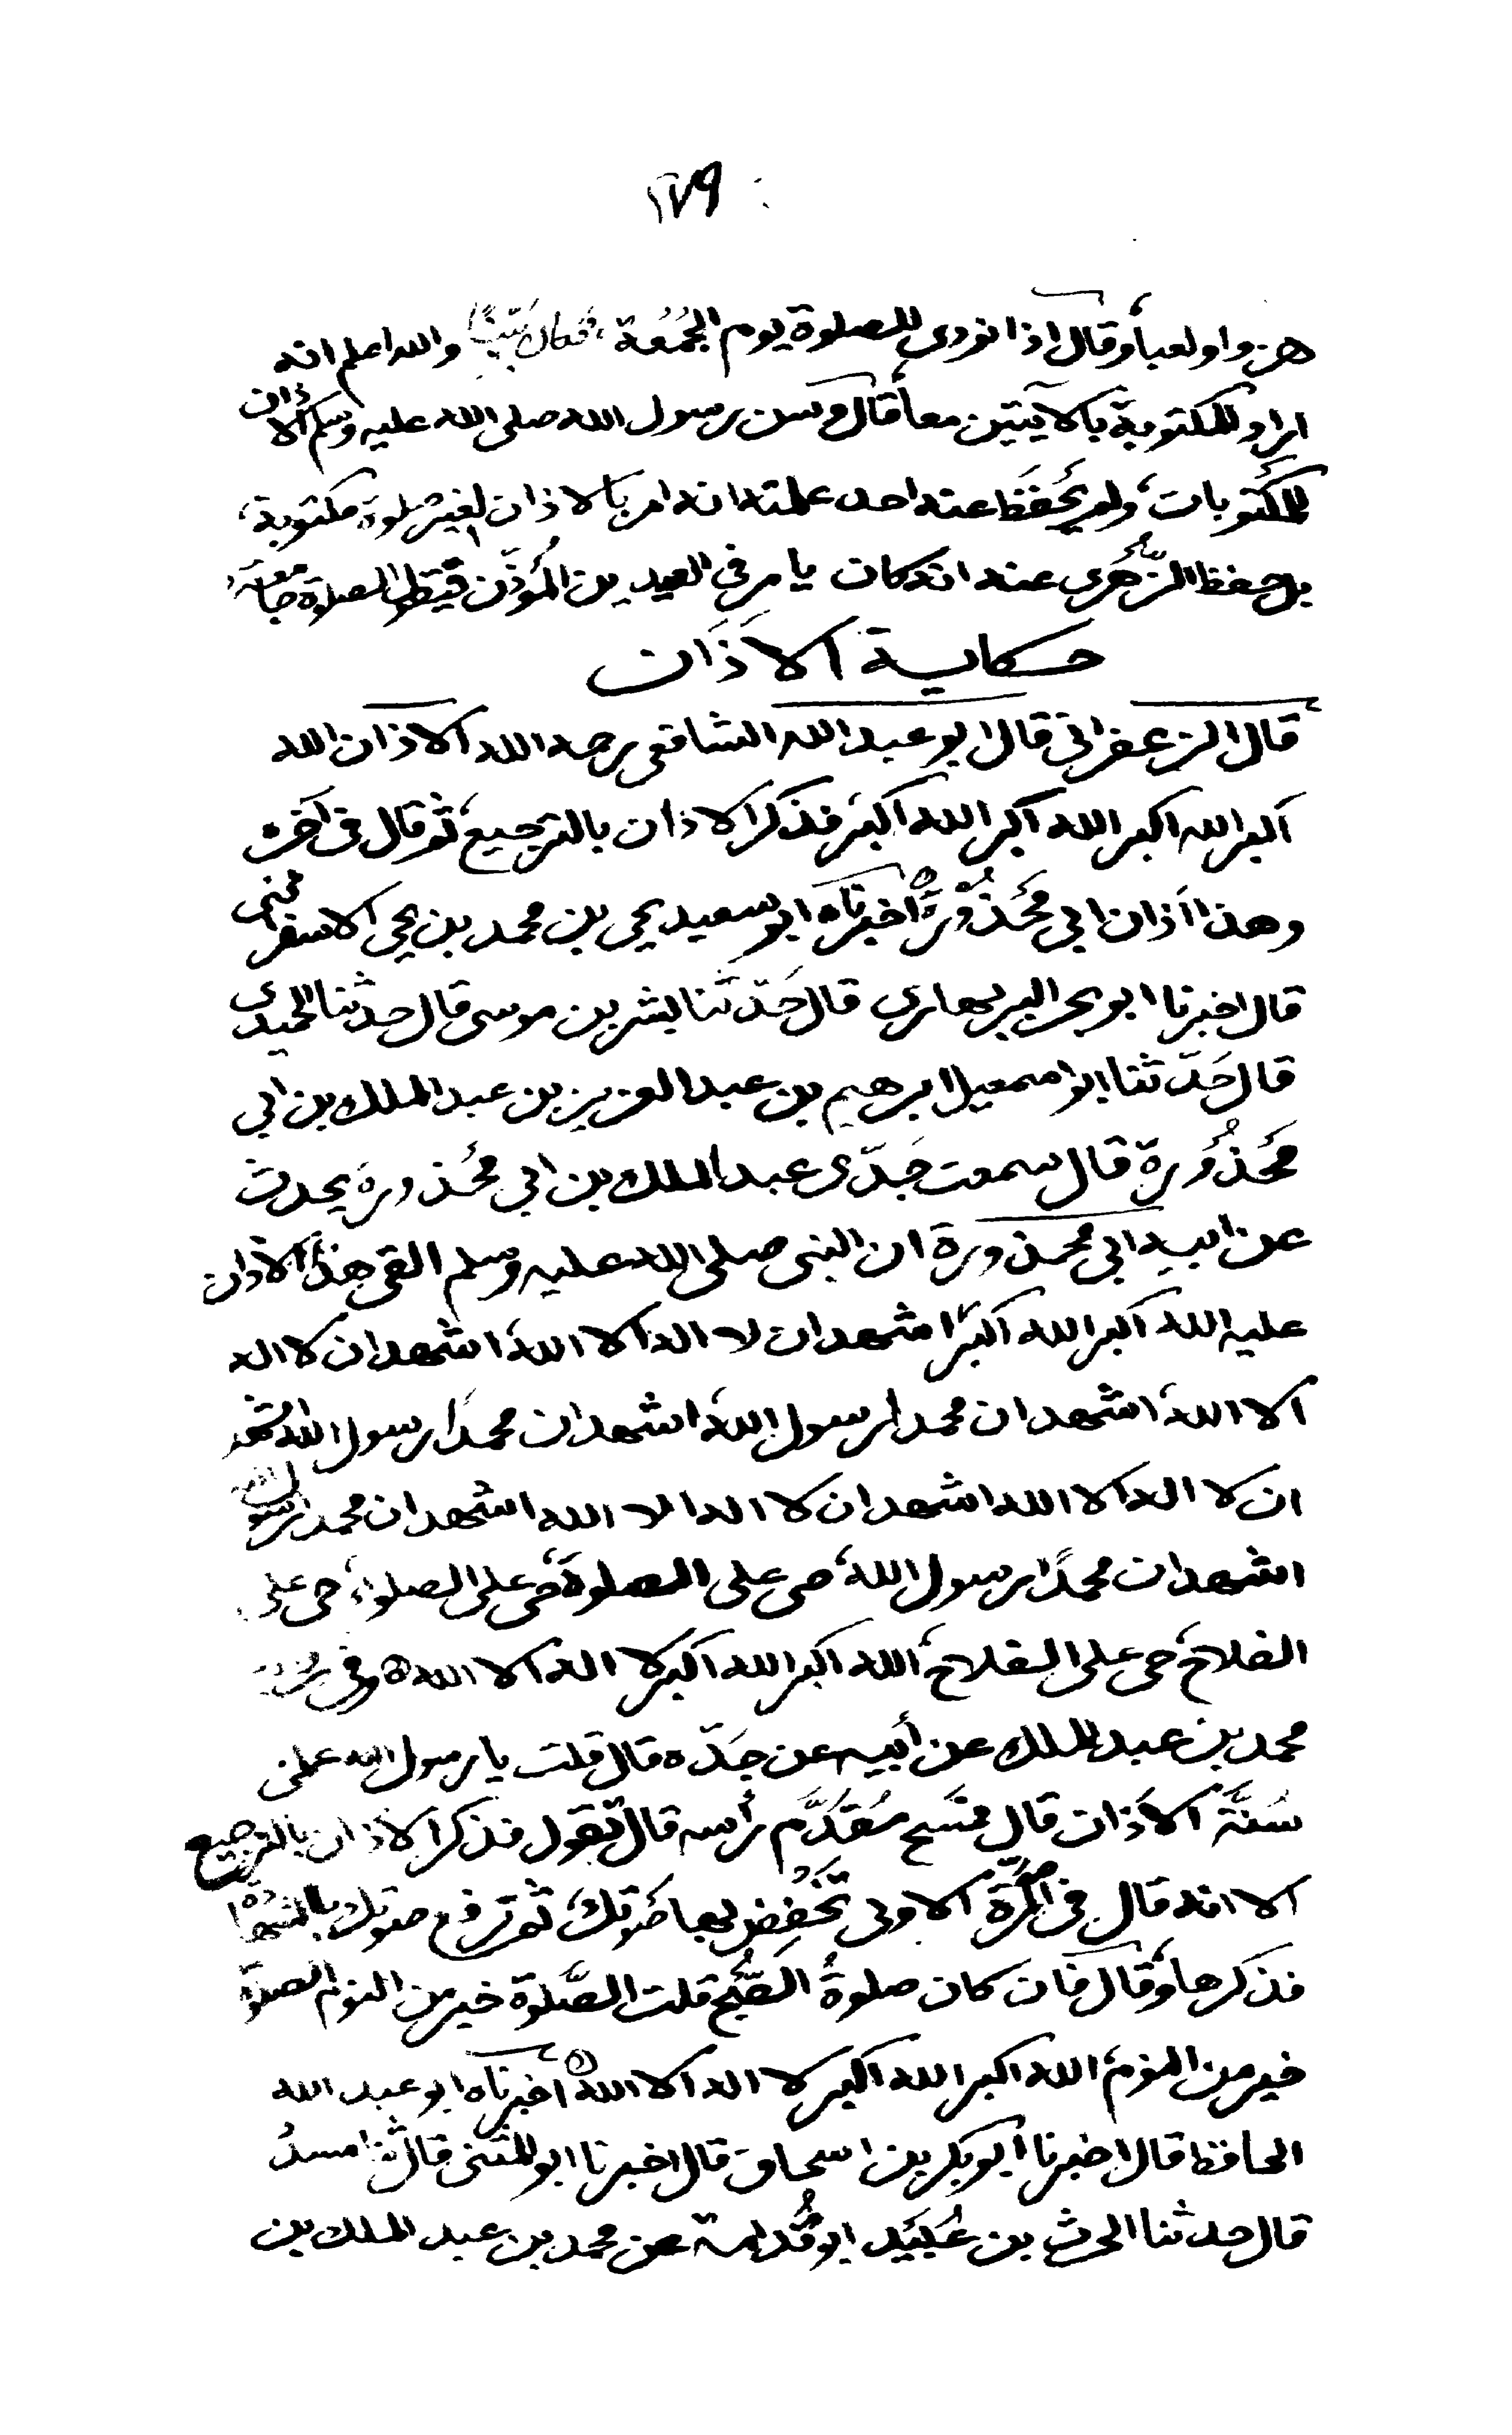 ١٧٩
هزوا ولعبا وقال اذا نودى للصلوة يوم الجُمُعة فكان بيّنًا والله اعلم انه
اراد المكتوبة بالآيتين معا قال وسن رسول الله صلى الله عليه وسلم الاذان
للمكتوبات ولم يُحفَظ عنه احد علمته انه امر بالاذان لغير صلوة مكتوبة
بل حفظ الزّهُرى عنه انه كان يامر فى العيدين المُوذّن فيقول الصلوة جامعة
حكاية الاَذَان
قال الزعفرانى قال ابو عبد الله الشافعى رحمه الله الاذان الله
اكبر الله اكبر الله اكبر الله اكبر فذكر الاذان بالترجيع ثم قال فى آخره
وهذا اَذان ابى مَحُذُوْرَة اخبرناه ابو سعيد يحيى بن محمد بن يحيى الاسفرائنى
قال اخبرنا ابو بحر البربهارى قال حَدّثَنا بشر بن موسى قال حدثنا الحميدى
قال حَدّثنا ابو اسمعيل ابرهيم بن عبد العزيز بن عبد الملك بن ابى
مَحُذُورة قال سمعت جَدّى عبد الملك بن ابى محُذورة يحدث
عن ابيه ابى محمذورة ان النبى صلى الله عليه وسلم القى هذا الاذان
عليه الله اكبر الله اكبر اشهد ان لا اله الا الله اشهد ان لا اله
الا الله اشهد ان محمدا رسول الله اشهد ان محمدًا رسول الله اشهد
ان لا اله الا الله اشهد ان لا اله الا الله اشهد ان محمدا رسول الله
اشهد ان محمدًا رسول الله حى على الصلوة حى على الصلوة حى على
الفلاح حى على الفلاح الله اكبر الله اكبر لا اله الا الله وفى
محمد بن عبد الملك عن أبيه عن جَدّه قال قلت يا رسول الله علمنى
سُنَّةَ الاَذان قال فمَسَح مُقَدَّم رأسه قال تقول فذكر الاذان بالترجيع
الا انه قال فى المرّة الاولى تخفِض بها صَوتك ثم ترفع صوتك بالشهادة
فذكرها وقال فان كان صلوةُ الصُّبح قلت الصَّلوة خير من النوم الصلوة
خير من النوم الله اكبر الله اكبر لا اله الا الله اخبرناه ابو عبد الله
الحافظ قال اخبرنا ابو بكر بن اسحاق قال اخبرنا ابو المثنى قال ثنا مسددُ
قال حدثنا الحرث بن عُبَيَد ابو قُدامة عن محمد بن عبد الملك بن